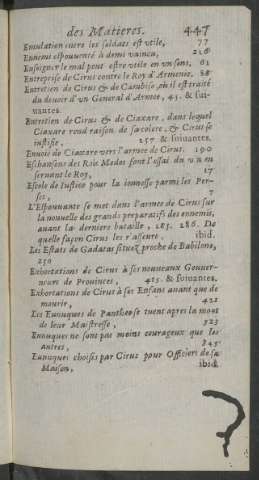 des Matieres. 447
Emulation entre les soldats est vtile, 77
Ennemi espouuenté à demi vaincu, 216
Enseigner le mal peut estre vtile en vn sens, 62
Entreprise de Cirus contre le Roy d'Armenie, 88
Entretien de Cirus & de Cambise, où il est traité
du deuoir d'vn General d'Armée, 45. & sui-
uantes.
Entretien de Cirus & de Ciaxare, dans lequel
Ciaxare rend raison de sa colere, & Cirus se
iustifie, 257 & suiuantes.
Enuoie de Ciaxare vers l'armee de Cirus. 190
Eschansons des Rois Medes font l'essai du vin en
seruant le Roy, 17
Escole de Iustice pour la ieunesse parmi les Per-
ses, 7
L'Espouuante se met dans l'armee de Cirus sur
la nouuelle des grands preparatifs des ennemis,
auant la derniere bataille, 285. 286. De
quelle façon Cirus les r'asseure. ibid.
Les Estats de Gadatas situez proche de Babilone,
250
Exhortations de Cirus à ses nouueaux Gouuer-
neurs de Prouinces, 415. & suiuantes.
Exhortations de Cirus à ses Enfans auant que de
mourir, 421
Les Eunuques de Panthee se tuent apres la mort
de leur Maistresse, 323
Eunuques ne sont pas moins courageux que les
autres, 345
Eunuques choisis par Cirus pour Officiers de sa
Maison, ibid.